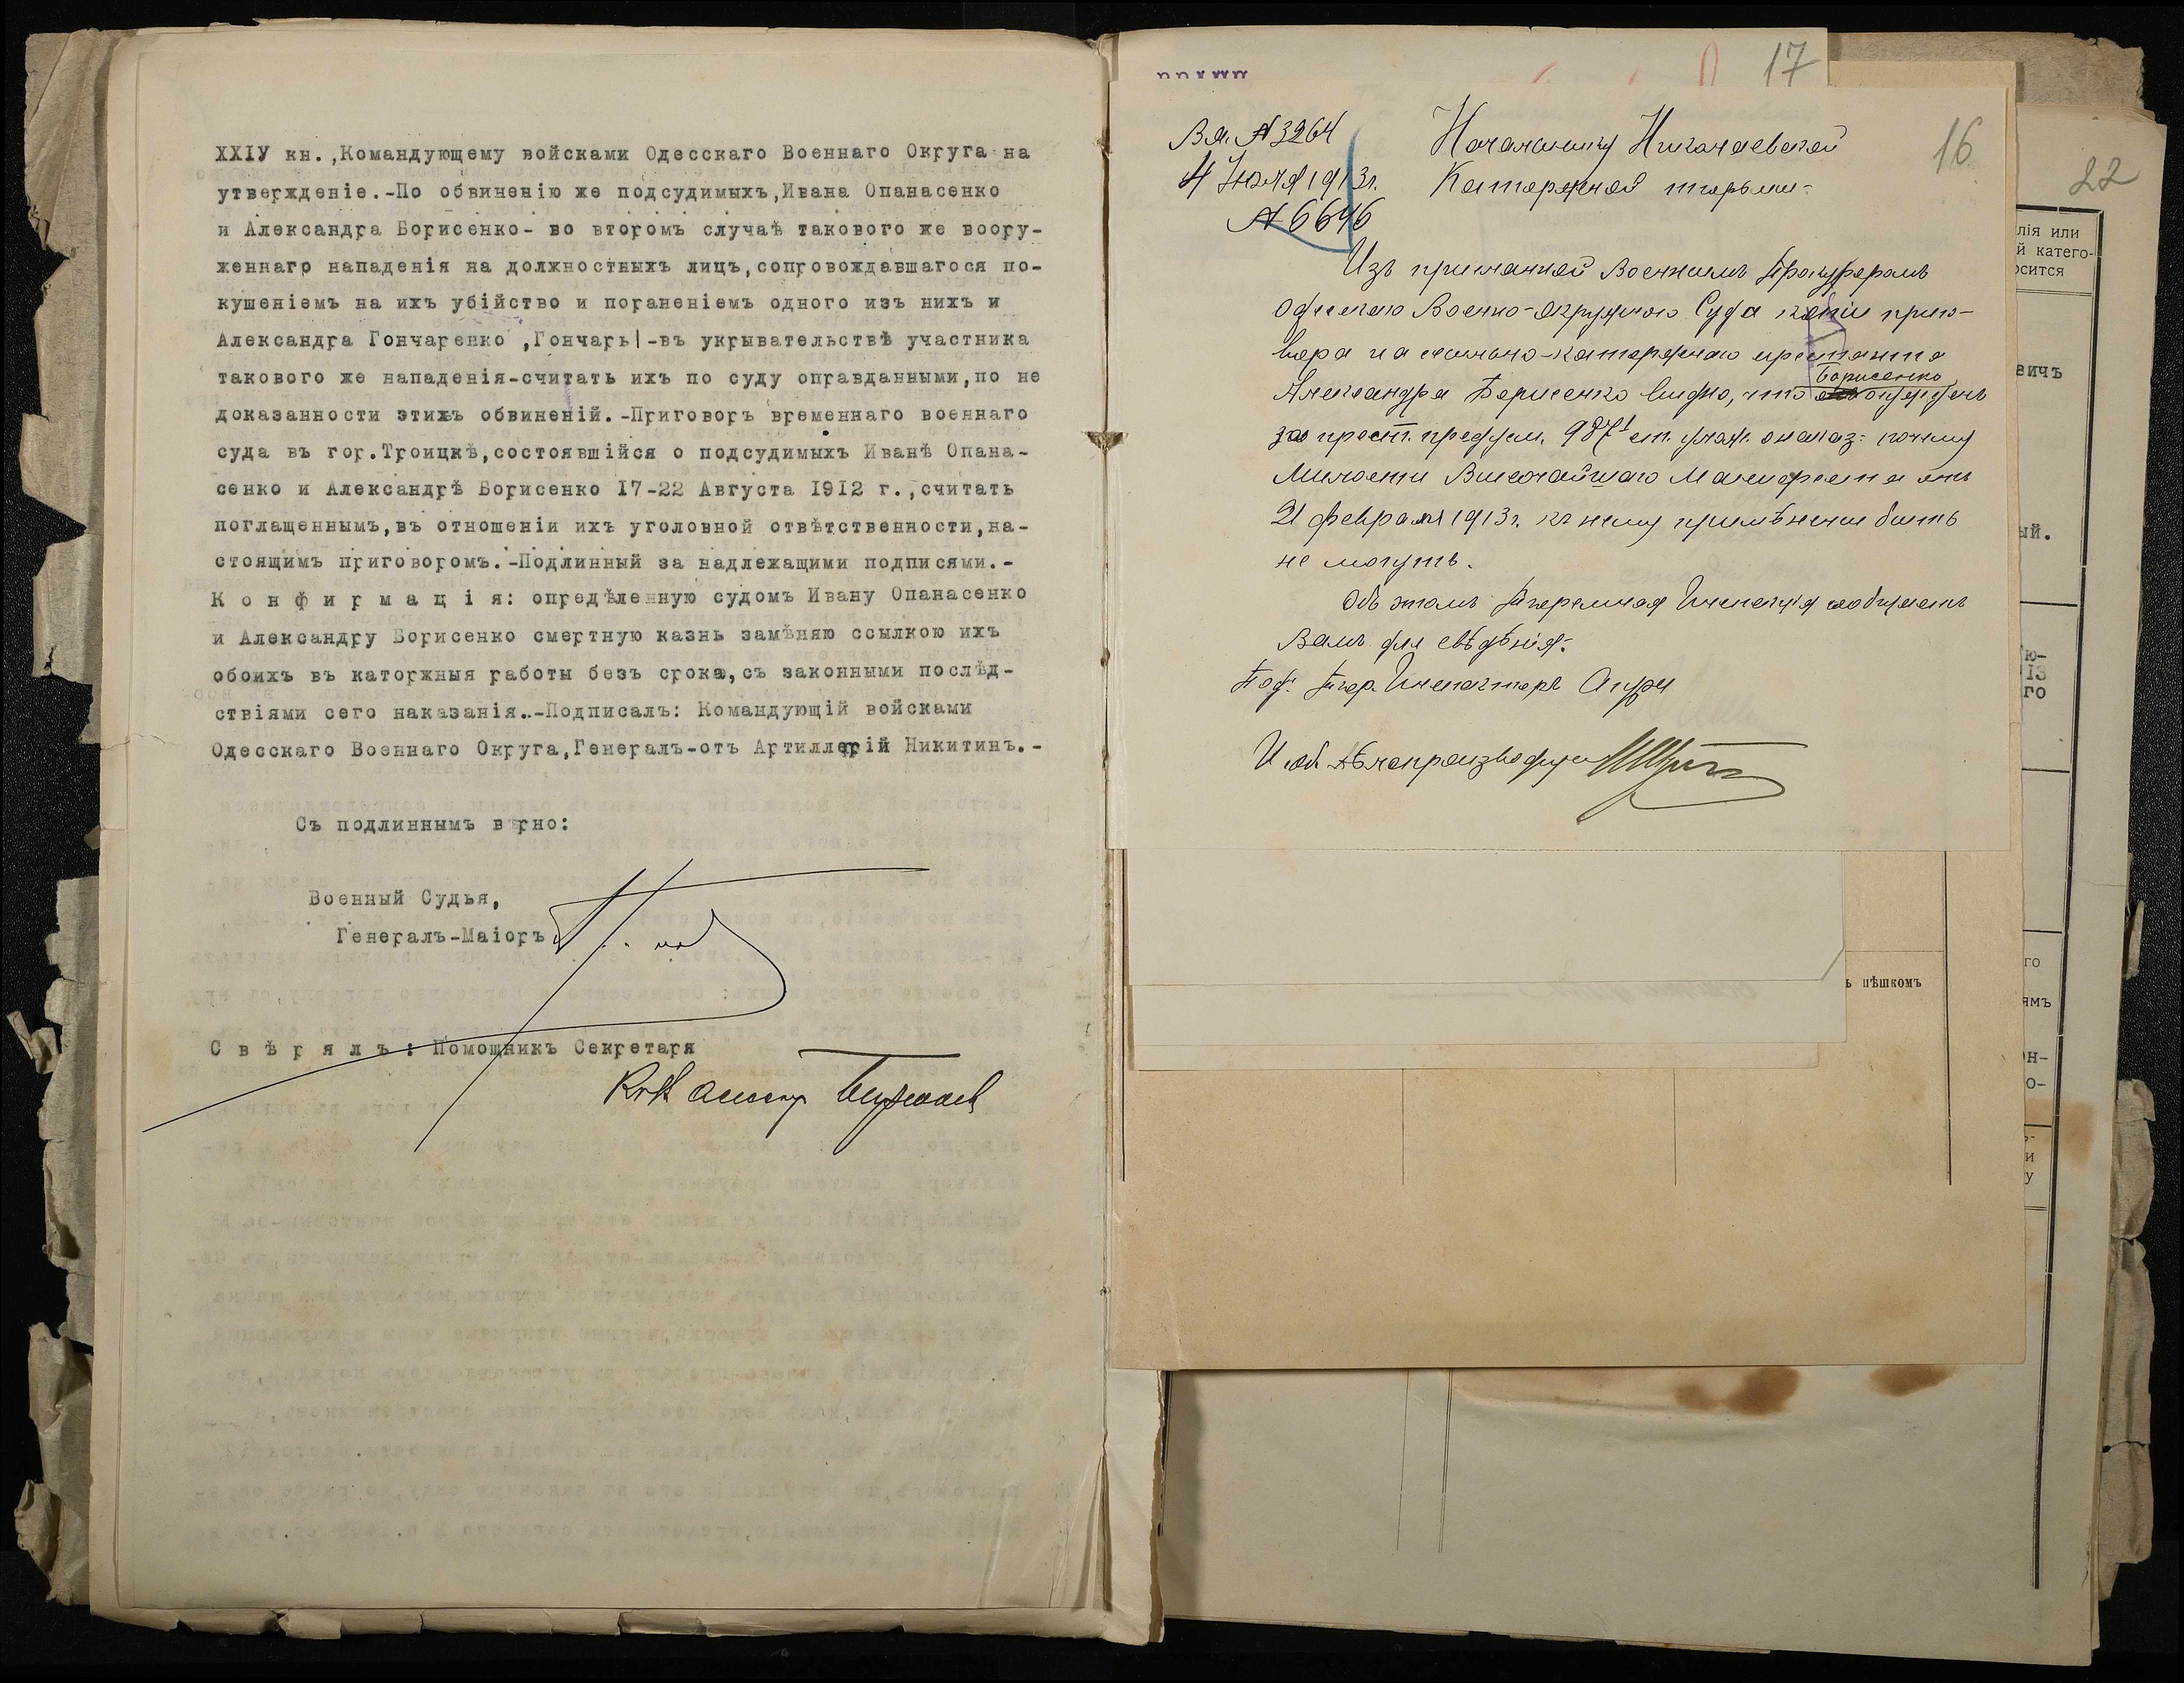 XXIУ кн.,Командующему войсками Одесскаго Военнаго Округа на
утвержденіе.-По обвиненію же подсудимыхъ,Ивана Опанасенко
и Александра Борисенко- во второмъ случаѣ такового же воору-
женнаго нападенія на должностныхъ лицъ,сопровождавшагося по-
кушеніемъ на ихъ убійство и пораненіемъ одного изъ нихъ и
Александра Гончаренко ,Гончарь|-въ укрывательствѣ участника
такового же нападенія-считать ихъ по суду оправданными,по не
доказанности этихъ обвиненій.-Приговоръ временнаго военнаго
суда въ гор.Троицкѣ,состоявшійся о подсудимыхъ Иванѣ Опана-
сенко и Александрѣ Борисенко 17-22 Августа 1912 г.,считать
поглащеннымъ,въ отношеніи ихъ уголовной отвѣтственности,на-
стоящимъ приговоромъ.-Подлинный за надлежащими подписями.-
К о н ф и р м а ц і я: опредѣленную судомъ Ивану Опанасенко
и Александру Борисенко смертную казнь замѣняю ссылкою ихъ
обоихъ въ каторжныя работы безъ срока,съ законными послѣд-
ствіями сего наказанія..-Подписалъ: Командующій войсками
Одесскаго Военнаго Округа,Генералъ-отъ Артиллерій Никитинъ.-
Съ подлиннымъ вѣрно:
Военный Судья,
Генералъ-Маіоръ
С в ѣ р я л ъ : Помощникъ Секретаря
17
16
22
Вх. № 3264
4 Июля 1913г.
№ 6646
Начальнику Николаевской
Каторжной тюрьмы.
Изъ присланной Военнымъ Прокуроромъ
Одесскаго Военно-Окружного Суда копіи приго-
вора на ссыльно-каторжнаго арестанта
Александра Борисенко видно, что Борисенко осужденъ
за прест. предусм. 987¹ ст. улож. о наказ. почему
Милости Высочайшаго Манифеста отъ
21 февраля 1913г. къ нему примѣнены быть
не могутъ.
Объ этомъ Тюремная Инспекція сообщаетъ
Вамъ для свѣдѣнія.
Под. Тюр. Инспектора
И об. дѣлопроизводителя
лія или
й катего-
осится
евичъ
ый.
ю-
13
го
го
ямъ
он-
о-
и
у
ъ пѣшкомъ